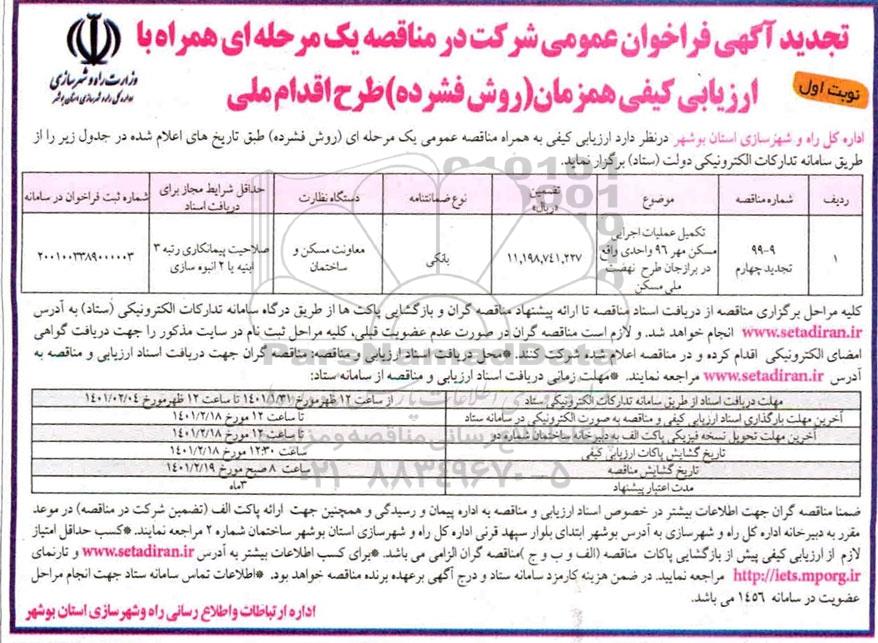 تجدید آگهی فراخوان عمومی شرکت در مناقصه یک مرحله ای همراه با
ارزیابی کیفی همزمان(روش فشرده)طرح اقدام ملی
نوبت اول
وزارت راه و شهرسازی
اداره کل راه و شهرسازی استان بوشهر
اداره کل راه و شهرسازی استان بوشهر درنظر دارد ارزیابی کیفی به همراه مناقصه عمومی یک مرحله ای (روش فشرده) طبق تاریخ های اعلام شده در جدول زیر را از
طریق سامانه تدارکات الکترونیکی دولت (ستاد) برگزار نماید.
ردیف	شماره مناقصه	موضوع	تضمین «ریال»	نوع ضمانتنامه	دستگاه نظارت	حداقل شرایط مجاز برای دریافت اسناد	شماره ثبت فراخوان در سامانه
۱	۹۹-۹ تجدید چهارم	تکمیل عملیات اجرایی مسکن مهر ۹۶ واحدی واقع در برازجان طرح نهضت ملی مسکن	۱۱,۱۹۸,۷۴۱,۲۳۷	بانکی	معاونت مسکن و ساختمان	صلاحیت پیمانکاری رتبه ۳ ابنیه یا ۲ انبوه سازی	۲۰۰۱۰۰۳۳۸۹۰۰۰۰۰۳
کلیه مراحل برگزاری مناقصه از دریافت اسناد مناقصه تا ارائه پیشنهاد مناقصه گران و بازگشایی پاکت ها از طریق درگاه سامانه تدارکات الکترونیکی (ستاد) به آدرس
www.setadiran.ir انجام خواهد شد. و لازم است مناقصه گران در صورت عدم عضویت قبلی، کلیه مراحل ثبت نام در سایت مذکور را جهت دریافت گواهی
امضای الکترونیکی اقدام کرده و در مناقصه اعلام شده شرکت کنند. *محل دریافت اسناد ارزیابی و مناقصه: مناقصه گران جهت دریافت اسناد ارزیابی و مناقصه به
آدرس www.setadiran.ir مراجعه نمایند. *مهلت زمانی دریافت اسناد ارزیابی و مناقصه از سامانه ستاد:
مهلت دریافت اسناد از طریق سامانه تدارکات الکترونیکی ستاد	از ساعت ۱۲ ظهر مورخ ۱۴۰۱/۱/۳۱ تا ساعت ۱۲ ظهر مورخ ۱۴۰۱/۰۲/۰۴
آخرین مهلت بارگذاری اسناد ارزیابی کیفی و مناقصه به صورت الکترونیکی در سامانه ستاد	تا ساعت ۱۲ مورخ ۱۴۰۱/۲/۱۸
آخرین مهلت تحویل نسخه فیزیکی پاکت الف به دبیرخانه ساختمان شماره دو	تا ساعت ۱۲ مورخ ۱۴۰۱/۲/۱۸
تاریخ گشایش پاکات ارزیابی کیفی	ساعت ۱۲:۳۰ مورخ ۱۴۰۱/۲/۱۸
تاریخ گشایش مناقصه	ساعت ۸ صبح مورخ ۱۴۰۱/۲/۱۹
مدت اعتبار پیشنهاد	۳ماه
ضمنا مناقصه گران جهت اطلاعات بیشتر در خصوص اسناد ارزیابی و مناقصه به اداره پیمان و رسیدگی و همچنین جهت ارائه پاکت الف (تضمین شرکت در مناقصه) در موعد
مقرر به دبیرخانه اداره کل راه و شهرسازی به آدرس بوشهر ابتدای بلوار سپهبد قرنی اداره کل راه و شهرسازی استان بوشهر ساختمان شماره ۲ مراجعه نمایند.*کسب حداقل امتیاز
لازم از ارزیابی کیفی پیش از بازگشایی پاکات مناقصه (الف و ب و ج )مناقصه گران الزامی می باشد. *برای کسب اطلاعات بیشتر به آدرس www.setadiran.ir و تارنمای
http://iets.mporg.ir مراجعه نمایید. در ضمن هزینه کارمزد سامانه ستاد و درج آگهی برعهده برنده مناقصه خواهد بود. *اطلاعات تماس سامانه ستاد جهت انجام مراحل
عضویت در سامانه ۱۴۵۶ می باشد.
اداره ارتباطات و اطلاع رسانی راه و شهرسازی استان بوشهر
ParsNamadData
۰۲۱-۸۸۳۴۹۶۷۰-۵